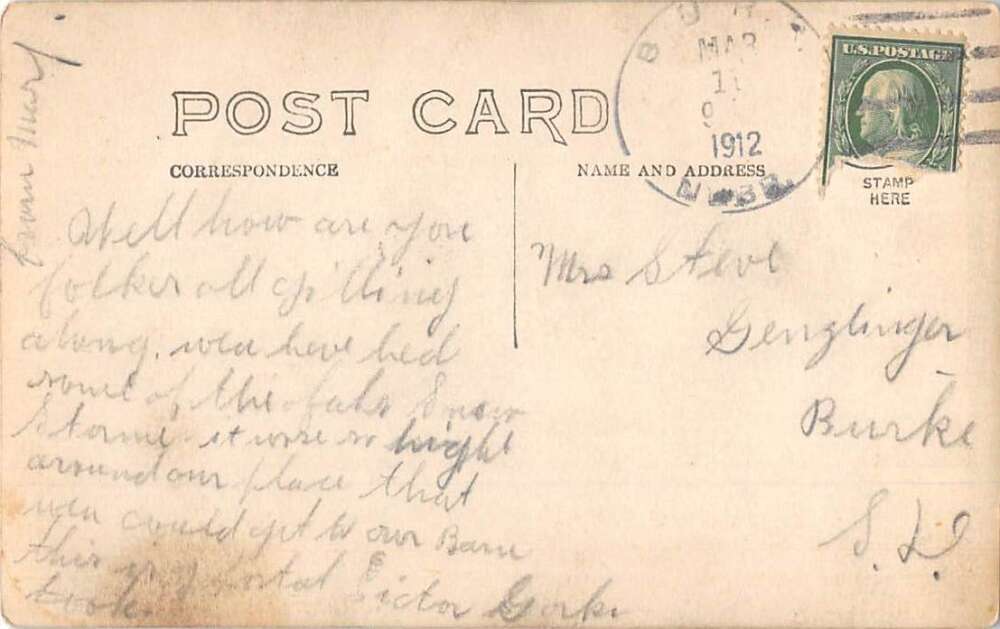 from Mary
POST CARD
CORRESPONDENCE
NAME AND ADDRESS
BUR
MAR
11
9
1912
NEBR.
U.S. POSTAGE
STAMP
HERE
Well how are you
folks all gitting
along. wea have hed
some of the Snow
Storme it wore so hight
around our place that
wea could get to our Barn
this is postal Victor Gorke
took.
Mrs Steve
Genzlinger
Burke
S. D.